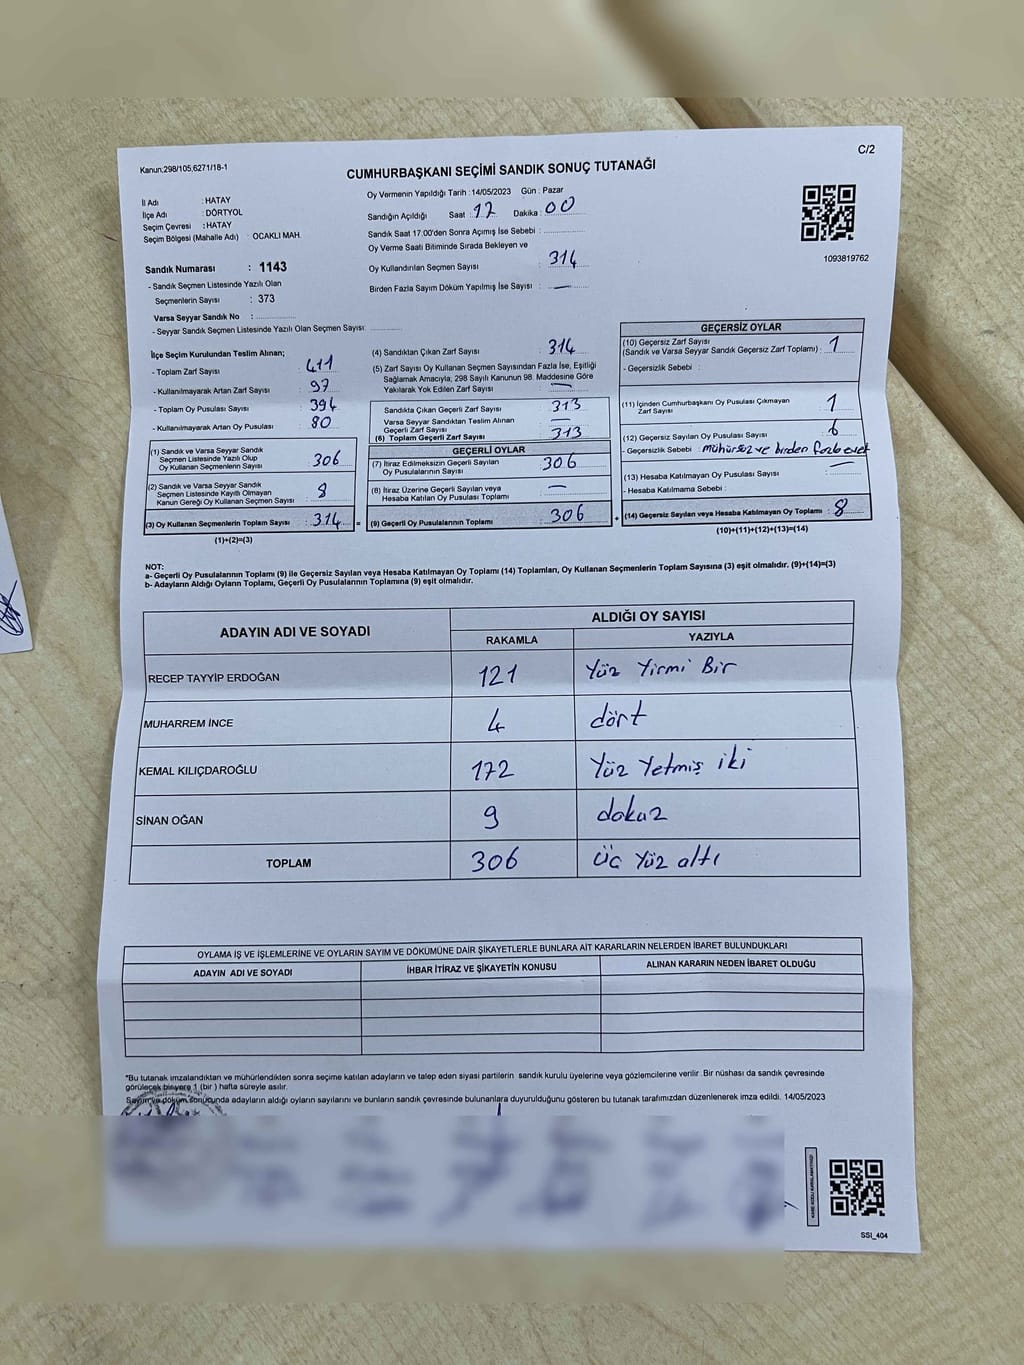 Kanun,298/105,6271/18-1
C/2
CUMHURBAŞKANI SEÇİMİ SANDIK SONUÇ TUTANAĞI
İl Adı : HATAY
İlçe Adı : DÖRTYOL
Seçim Çevresi : HATAY
Seçim Bölgesi (Mahalle Adı) : OCAKLI MAH.
Oy Vermenin Yapıldığı Tarih : 14/05/2023 Gün : Pazar
Sandığın Açıldığı Saat : 17 Dakika : 00
Sandık Saat 17.00'den Sonra Açımış İse Sebebi :
Oy Verme Saati Bitiminde Sırada Bekleyen ve
Oy Kullandırılan Seçmen Sayısı : 314
Birden Fazla Sayım Döküm Yapılmış İse Sayısı : —
1093819762
Sandık Numarası : 1143
- Sandık Seçmen Listesinde Yazılı Olan
Seçmenlerin Sayısı : 373
Varsa Seyyar Sandık No :
- Seyyar Sandık Seçmen Listesinde Yazılı Olan Seçmen Sayısı:
İlçe Seçim Kurulundan Teslim Alınan;
- Toplam Zarf Sayısı : 411
- Kullanılmayarak Artan Zarf Sayısı : 97
- Toplam Oy Pusulası Sayısı : 394
- Kullanılmayarak Artan Oy Pusulası : 80
(1) Sandık ve Varsa Seyyar Sandık
Seçmen Listesinde Yazılı Olup
Oy Kullanan Seçmenlerin Sayısı : 306
(2) Sandık ve Varsa Seyyar Sandık
Seçmen Listesinde Kayıtlı Olmayan
Kanun Gereği Oy Kullanan Seçmen Sayısı : 8
(3) Oy Kullanan Seçmenlerin Toplam Sayısı : 314 =
(1)+(2)=(3)
(4) Sandıktan Çıkan Zarf Sayısı : 314
(5) Zarf Sayısı Oy Kullanan Seçmen Sayısından Fazla İse, Eşitliği
Sağlamak Amacıyla, 298 Sayılı Kanunun 98. Maddesine Göre
Yakılarak Yok Edilen Zarf Sayısı : —
Sandıkta Çıkan Geçerli Zarf Sayısı : 313
Varsa Seyyar Sandıktan Teslim Alınan
Geçerli Zarf Sayısı : —
(6) Toplam Geçerli Zarf Sayısı : 313
GEÇERLİ OYLAR
(7) İtiraz Edilmeksizin Geçerli Sayılan
Oy Pusulalarının Sayısı : 306
(8) İtiraz Üzerine Geçerli Sayılan veya
Hesaba Katılan Oy Pusulası Toplamı : —
(9) Geçerli Oy Pusulalarının Toplamı : 306 +
GEÇERSİZ OYLAR
(10) Geçersiz Zarf Sayısı
(Sandık ve Varsa Seyyar Sandık Geçersiz Zarf Toplamı) : 1
- Geçersizlik Sebebi :
(11) İçinden Cumhurbaşkanı Oy Pusulası Çıkmayan
Zarf Sayısı : 1
(12) Geçersiz Sayılan Oy Pusulası Sayısı : 6
- Geçersizlik Sebebi : mühürsüz ve birden fazla evet
(13) Hesaba Katılmayan Oy Pusulası Sayısı : —
- Hesaba Katılmama Sebebi :
(14) Geçersiz Sayılan veya Hesaba Katılmayan Oy Toplamı : 8
(10)+(11)+(12)+(13)=(14)
NOT:
a- Geçerli Oy Pusulalarının Toplamı (9) ile Geçersiz Sayılan veya Hesaba Katılmayan Oy Toplamı (14) Toplamları, Oy Kullanan Seçmenlerin Toplam Sayısına (3) eşit olmalıdır. (9)+(14)=(3)
b- Adayların Aldığı Oyların Toplamı, Geçerli Oy Pusulalarının Toplamına (9) eşit olmalıdır.
ADAYIN ADI VE SOYADI ALDIĞI OY SAYISI
RAKAMLA YAZIYLA
RECEP TAYYİP ERDOĞAN 121 Yüz Yirmi Bir
MUHARREM İNCE 4 dört
KEMAL KILIÇDAROĞLU 172 Yüz Yetmiş iki
SİNAN OĞAN 9 dokuz
TOPLAM 306 Üç Yüz altı
OYLAMA İŞ VE İŞLEMLERİNE VE OYLARIN SAYIM VE DÖKÜMÜNE DAİR ŞİKAYETLERLE BUNLARA AİT KARARLARIN NELERDEN İBARET BULUNDUKLARI
ADAYIN ADI VE SOYADI İHBAR İTİRAZ VE ŞİKAYETİN KONUSU ALINAN KARARIN NEDEN İBARET OLDUĞU
*Bu tutanak imzalandıktan ve mühürlendikten sonra seçime katılan adayların ve talep eden siyasi partilerin sandık kurulu üyelerine veya gözlemcilerine verilir. Bir nüshası da sandık çevresinde
görülecek bir yere 1 (bir ) hafta süreyle asılır.
Sayım ve döküm sonucunda adayların aldığı oyların sayılarını ve bunların sandık çevresinde bulunanlara duyurulduğunu gösteren bu tutanak tarafımızdan düzenlenerek imza edildi. 14/05/2023
SSI_404